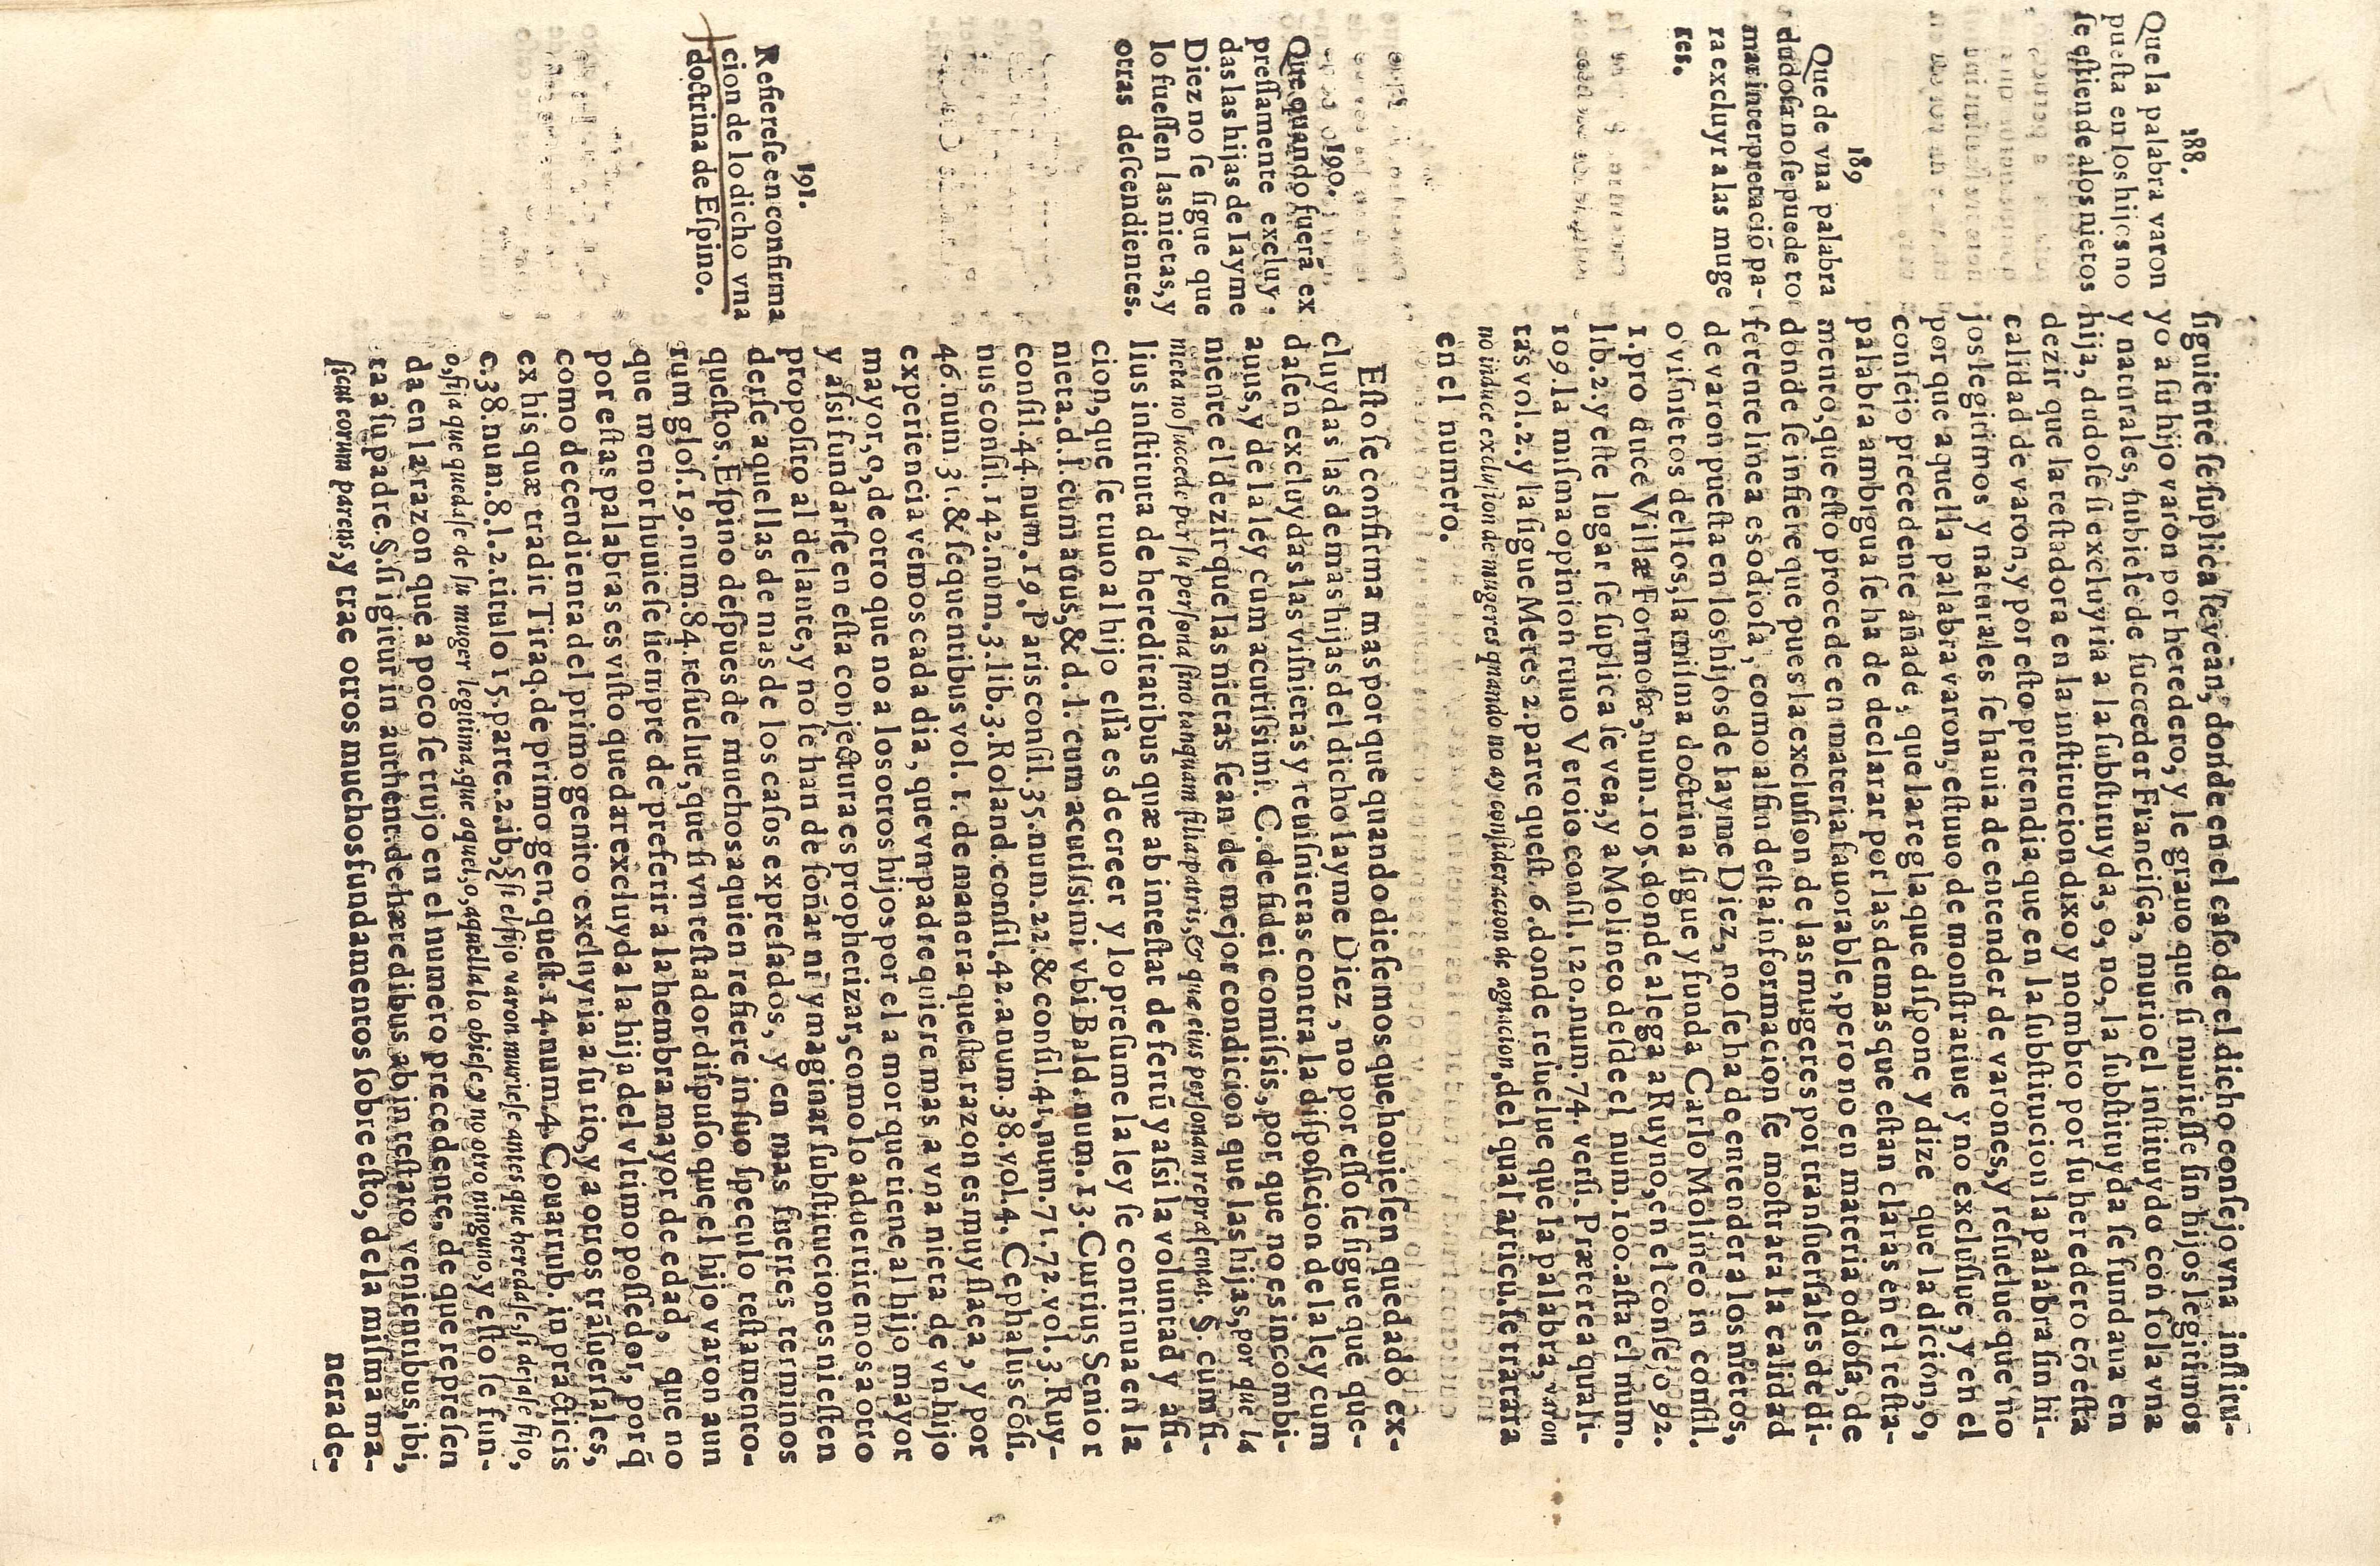 188.
Que la palabra varon
puesta en los hijos no
se estiende a los nietos
189
Que de vna palabra
dudosa no se puede to
mar interpretaciō pa-
ra excluyr a las muge
res.
190.
Que quando fuerā ex
pressamente excluy
das las hijas de Iayme
Diez no se sigue que
lo fuessen las nietas, y
otras descendientes.
191.
Refierese en confirma
cion de lo dicho vna
doctrina de Espino.
siguiente se suplica se vean, donde en el caso de el dicho consejo vna institu-
yo a su hijo varon por heredero, y le grauo que si muriesse sin hijos legitimos
y naturales, hubiese de succeder Francisca, murio el instituydo con sola vna
hija, dudose si excluyria a la substituyda, o, no, la substituyda se fundaua en
dezir que la testadora en la institucion dixo y nombro por su heredero cō esta
calidad de varon, y por esto pretendia que en la substitucion la palabra sin hi-
jos legitimos y naturales se hauia de entender de varones, y resuelue que no
por que aquella palabra varon, estuuo demonstratiue y no exclusiue, y en el
consejo precedente añade, que la regla que dispone y dize que la dicion, o,
palabra ambigua se ha de declarar por las demas que estan claras en el testa-
mento, que esto procede en materia fauorable, pero no en materia odiosa, de
donde se infiere que pues la exclusion de las mugeres por transuersales de di-
ferente linea es odiosa, como al fin desta informacion se mostrara la calidad
de varon puesta en los hijos de Iayme Diez, no se ha de entender a los nietos,
o visnietos dellos, la misma doctrina sigue y funda Carlo Molineo in consil.
1. pro duce Villæ Formosæ, num. 105. donde alega a Ruyno, en el consejo 92.
lib. 2. y este lugar se suplica se vea, y a Molineo desde el num. 100. asta el num.
109. la misma opinion tuuo Veroio consil. 120. num. 74. versi. Præterea quali-
tas vol. 2. y la sigue Meres 2. parte quest. 6. donde resuelue que la palabra, varon
no induce exclusion de mugeres quando no ay consideracion de agnacion, del qual articu. se tratara
en el numero.
Esto se confirma mas por que quando diesemos que houiesen quedado ex-
cluydas las demas hijas del dicho Iayme Diez, no por esso se sigue que que-
dasen excluydas las visnietas y reuisnietas contra la disposicion de la ley cum
auus, y de la ley cum acutissimi. C. de fidei comissis, por que no es incombi-
niente el dezir que las nietas sean de mejor condicion que las hijas, por que la
nieta no succede por su persona sino tanquam filia patris, & quæ eius personam repræsentat. §. cum fi-
lius institura de hereditatibus quæ ab intestat deferū y assi la voluntad y afi-
cion, que se tuuo al hijo essa es de creer y lo presume la ley se continua en la
nieta. d. l. cum auus, & d. l. cum acutissimi. vbi Bald. num. 13. Curtius Senior
consil. 44. num. 19. Paris consil. 35. num. 22. & consil. 41. num. 71. 72. vol. 3. Ruy-
nus consil. 142. num. 3. lib. 3. Roland. consil. 42. a num. 38. vol. 4. Cephalus cōsi.
46. num 31. & sequentibus vol. 1. de manera que esta razon es muy flaca, y por
experiencia vemos cada dia, que vn padre quiere mas a vna nieta de vn hijo
mayor, o, de otro que no a los otros hijos por el amor que tiene al hijo mayor
y assi fundarse en esta conjectura es prophetizar, como lo aduertiremos a otro
proposito al delante, y no se han de soñar ni ymaginar substituciones ni esten
derse aquellas de mas de los casos expresados, y en mas fuertes terminos
questos. Espino despues de muchos a quien refiere in suo speculo testamento-
rum glos. 19. num. 84. resuelue, que si vn testador dispuso que el hijo varon aun
que menor huuiese siempre de preferir a la hembra mayor de edad, que no
por estas palabras es visto quedar excluyda la hija del vltimo possedor, porq̄
como decendienta del primogenito excluyria a su tio, y a otros trāsuersales,
ex his quæ tradit Tiraq. de primo gen. quest. 14. num. 4. Couarrub. in practicis
c. 38. num. 8. l. 2. titulo 15. parte. 2. ib, & si el fijo varon muriese antes que heredase, si dejase fijo,
o, fija que quedase de su muger legitima, que aquel, o, aquella lo obiese, y no otro ninguno, y esto se fun-
da en la razon que a poco se trujo en el numero precedente, de que represen
ta a su padre. §. si igitur in authent. de hæredibus ab intestato venientibus, ibi,
sicut eorum parens, y trae otros muchos fundamentos sobre esto, de la misma ma-
nera de-